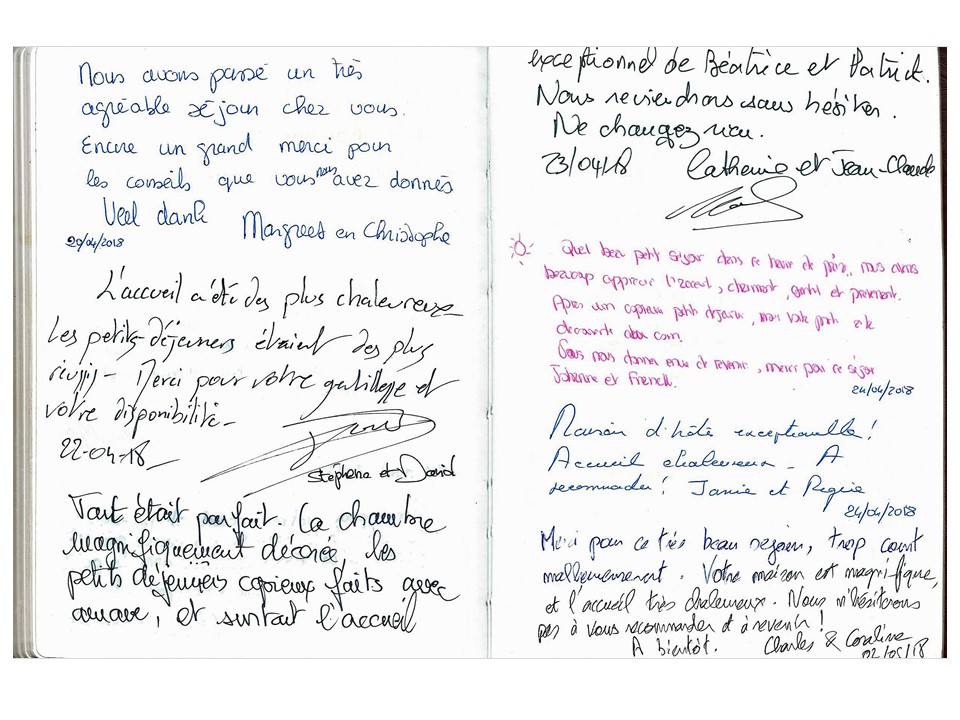 Nous avons passé un très
agréable séjour chez vous.
Encore un grand merci pour
les conseils que vous nous avez donnés
Veel dank Margreet en Christophe
20/04/2018
L'accueil a été des plus chaleureux
Les petits-déjeuners étaient des plus
réussis - Merci pour votre gentillesse et
votre disponibilité -
22-04-18
Stéphena et David
Tout était parfait. La chambre
magnifiquement décorée, les
petits déjeuners copieux faits avec
amour, et surtout l'accueil
exceptionnel de Béatrice et Patrick.
Nous reviendrons sans hésiter.
Ne changez rien.
23/04/18 Catherine et Jean-Claude
Quel beau petit séjour dans ce havre de paix, nous avons
beaucoup apprécié l'accueil, charmant, gentil et prévenant.
Après un copieux petit déjeuner,
découverte
Vous nous donnez envie de revenir, merci pour ce séjour
Johanne et Franck.
24/04/2018
Maison d'hôte exceptionnelle!
Accueil chaleureux - A
recommander! Janie et Regine
24/04/2018
Merci pour ce très beau séjour, trop court
malheureusement. Votre maison est magnifique,
et l'accueil très chaleureux. Nous n'hésiterons
pas à vous recommander et à revenir!
A bientôt. Charles & Coraline
02/05/18